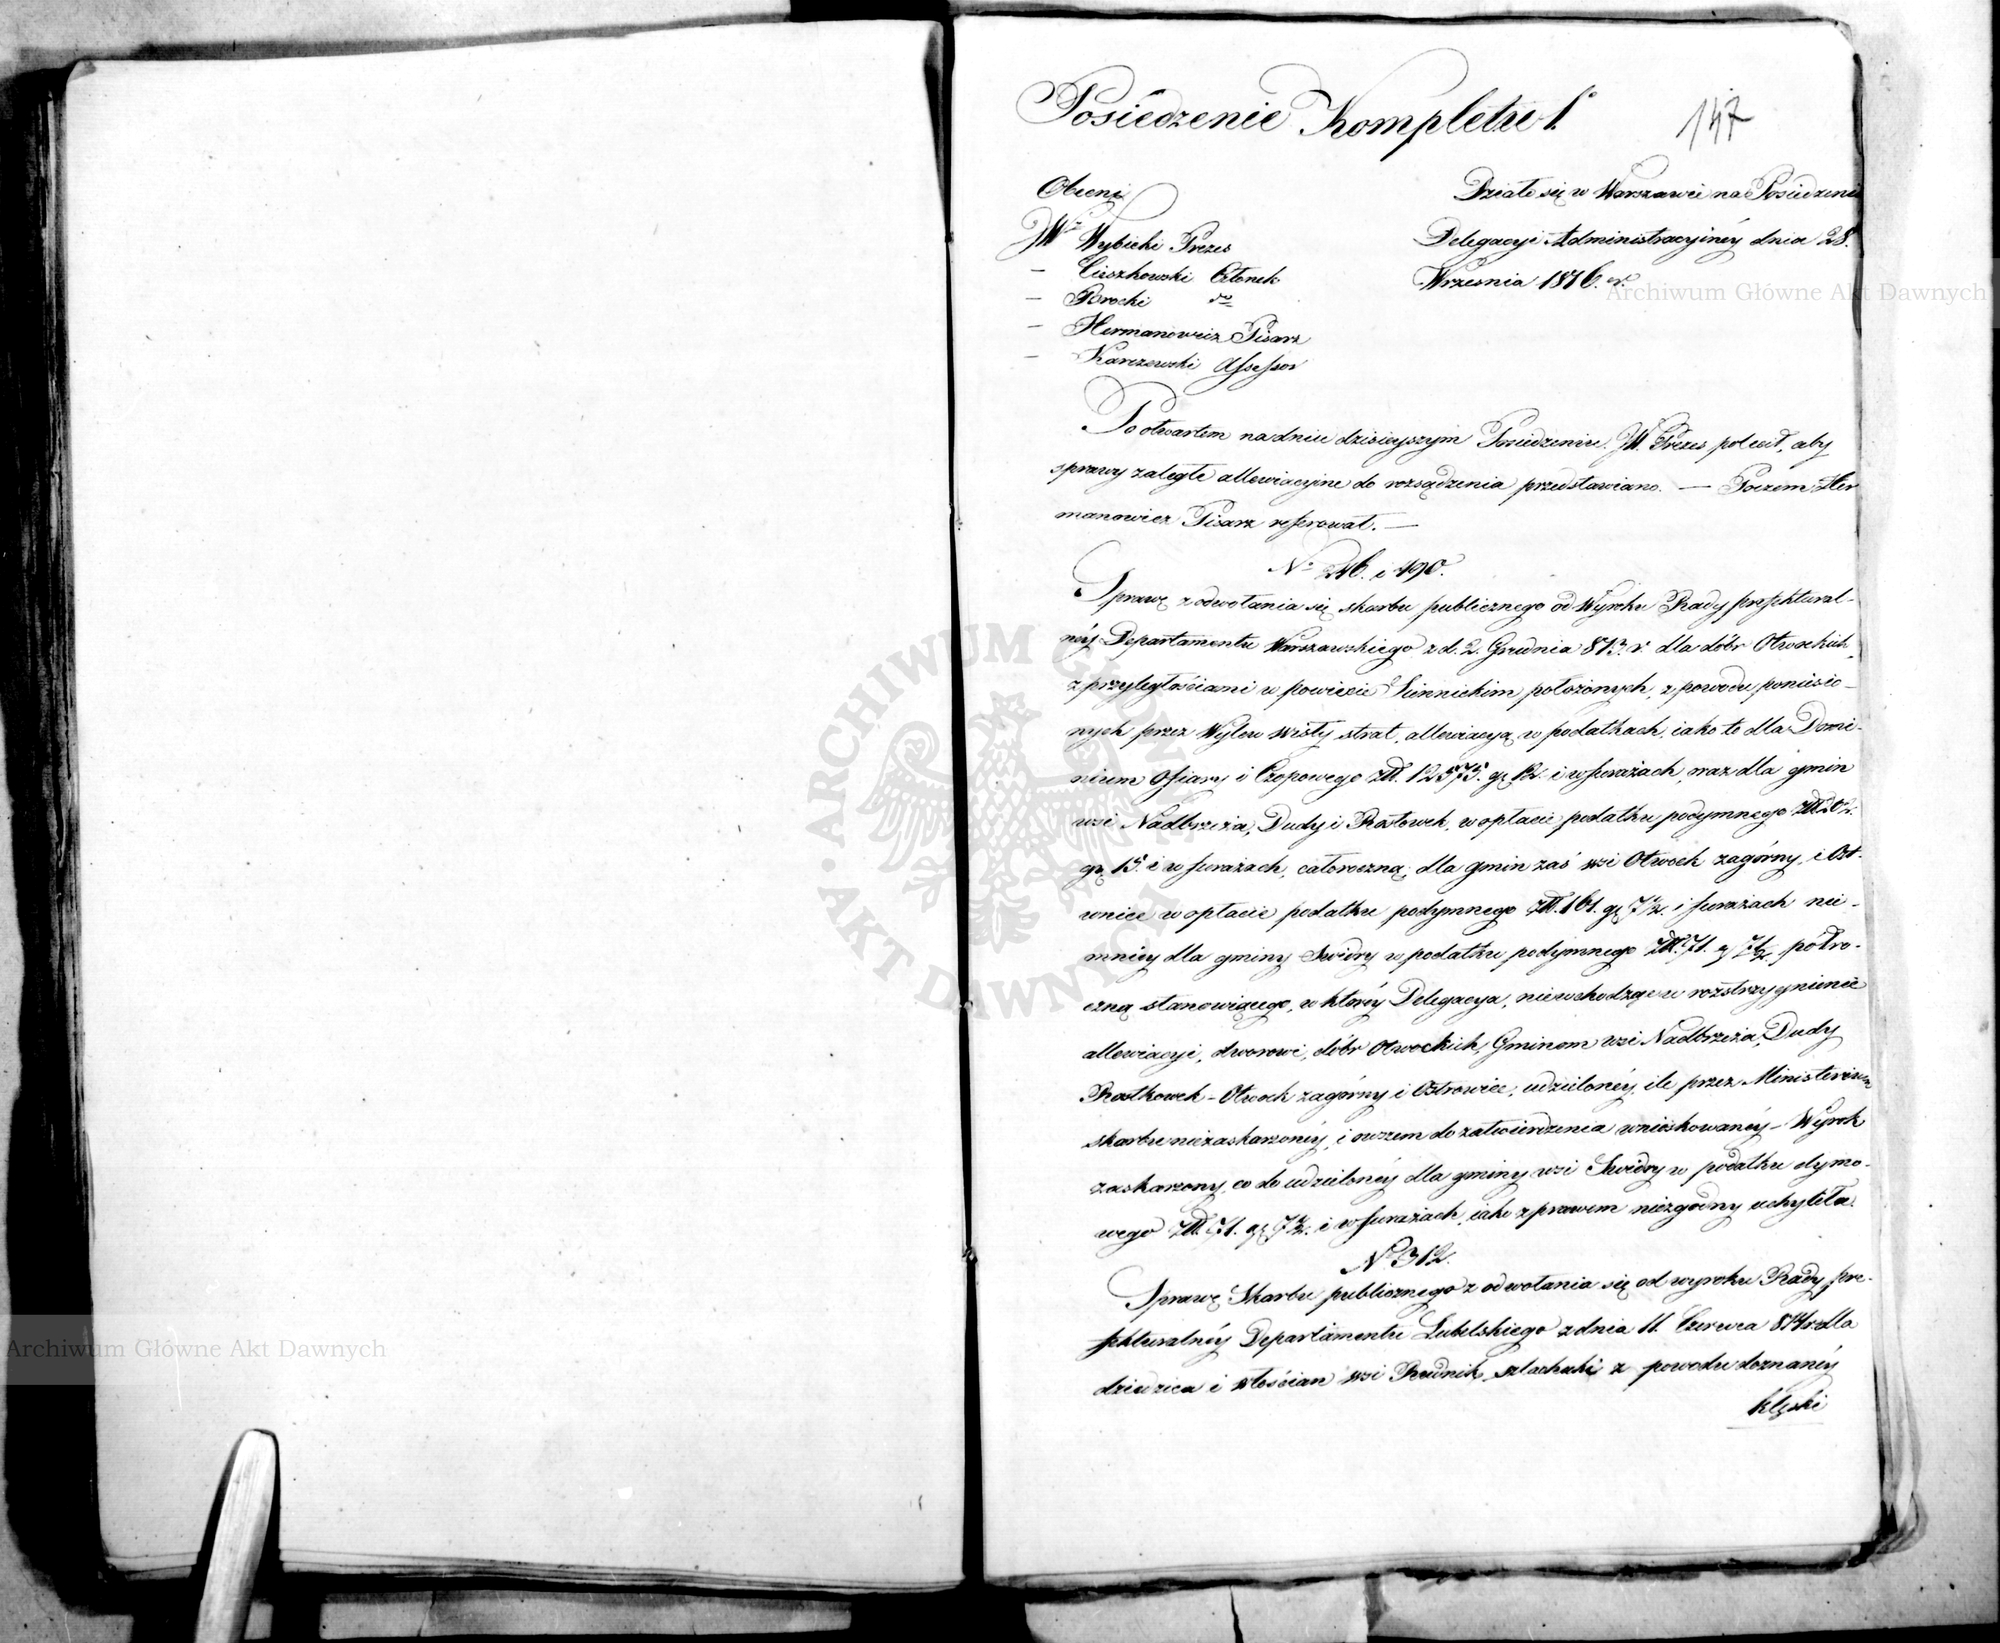 Posiedzenie Kompletu 1º
147
Obecni
JWni Wybicki Prezes
— Cieszkowski Członek
— Brocki do
— Hermanowicz Pisarz
— Karczewski Assessor
Działo się w Warszawie na Posiedzeniu
Delegacyi Administracyinéy dnia 28.
Wrzesnia 1816. r.
Po otwartem na dniu dzisieyszym Posiedzeniu, JW. Prezes polecił, aby
sprawy zaległe allewiacyine do rozsądzenia przedstawiano. — Poczem Her
manowicz Pisarz referował. —
No 246. i 490.
Sprawę z odwołania się skarbu publicznego od Wyroku Rady prefektural-
néy Departamentu Warszawskiego z d. 2. Grudnia 813. r. dla dóbr Otwockich
z przyległościami w powiecie Siennickim położonych, z powodu poniesio-
nych przez Wylew Wisły strat, allewiacyą w podatkach, iako to dla Domi-
nium Ofiary i Czopowego Złł. 12575. gr 12. i w furażach, oraz dla gmin
wsi Nadbrzeża, Dudy i Rostowek, w opłacie podatku podymnego
gr. 15. i w furażach, całoroczną; dla gmin zaś wsi Otwock zagórny, i Ost-
wniec w opłacie podatku podymnego Złł. 161. gr 7½. i furażach nie-
mniéy dla gminy Swidry w podatku podymnego Złł. 71. g 7½. półro-
czną stanowiącego, w któréy Delegacya, niewchodząc w rozstrzygnienie
allewiacyi, dworowi, dóbr Otwockich, Gminom wsi Nadbrzeża, Dudy
Rostkowek - Otwock zagórny i Ostrowiec, udzielonéy, ile przez Ministerium
skarbu niezaskarżonéy, i owszem do zatwierdzenia wnioskowanéy - Wyrok
zaskarżony, co do udzielonéy dla gminy wsi Swidry w podatku dymo-
wego Złł. 71. gr 7½. i w furażach, iako z prawem niezgodny uchyliła.
No 312.
Sprawę Skarbu publicznego z odwołania się od wyroku Rady pre-
fekturalnéy Departamentu Lubelskiego z dnia 11. Czerwca 814 r. dla
dziedzica i włościan wsi Rudnik szlachecki z powodu doznanéy
klęski
Archiwum Główne Akt Dawnych
Archiwum Główne Akt Dawnych
ARCHIWUM GŁÓWNE AKT DAWNYCH